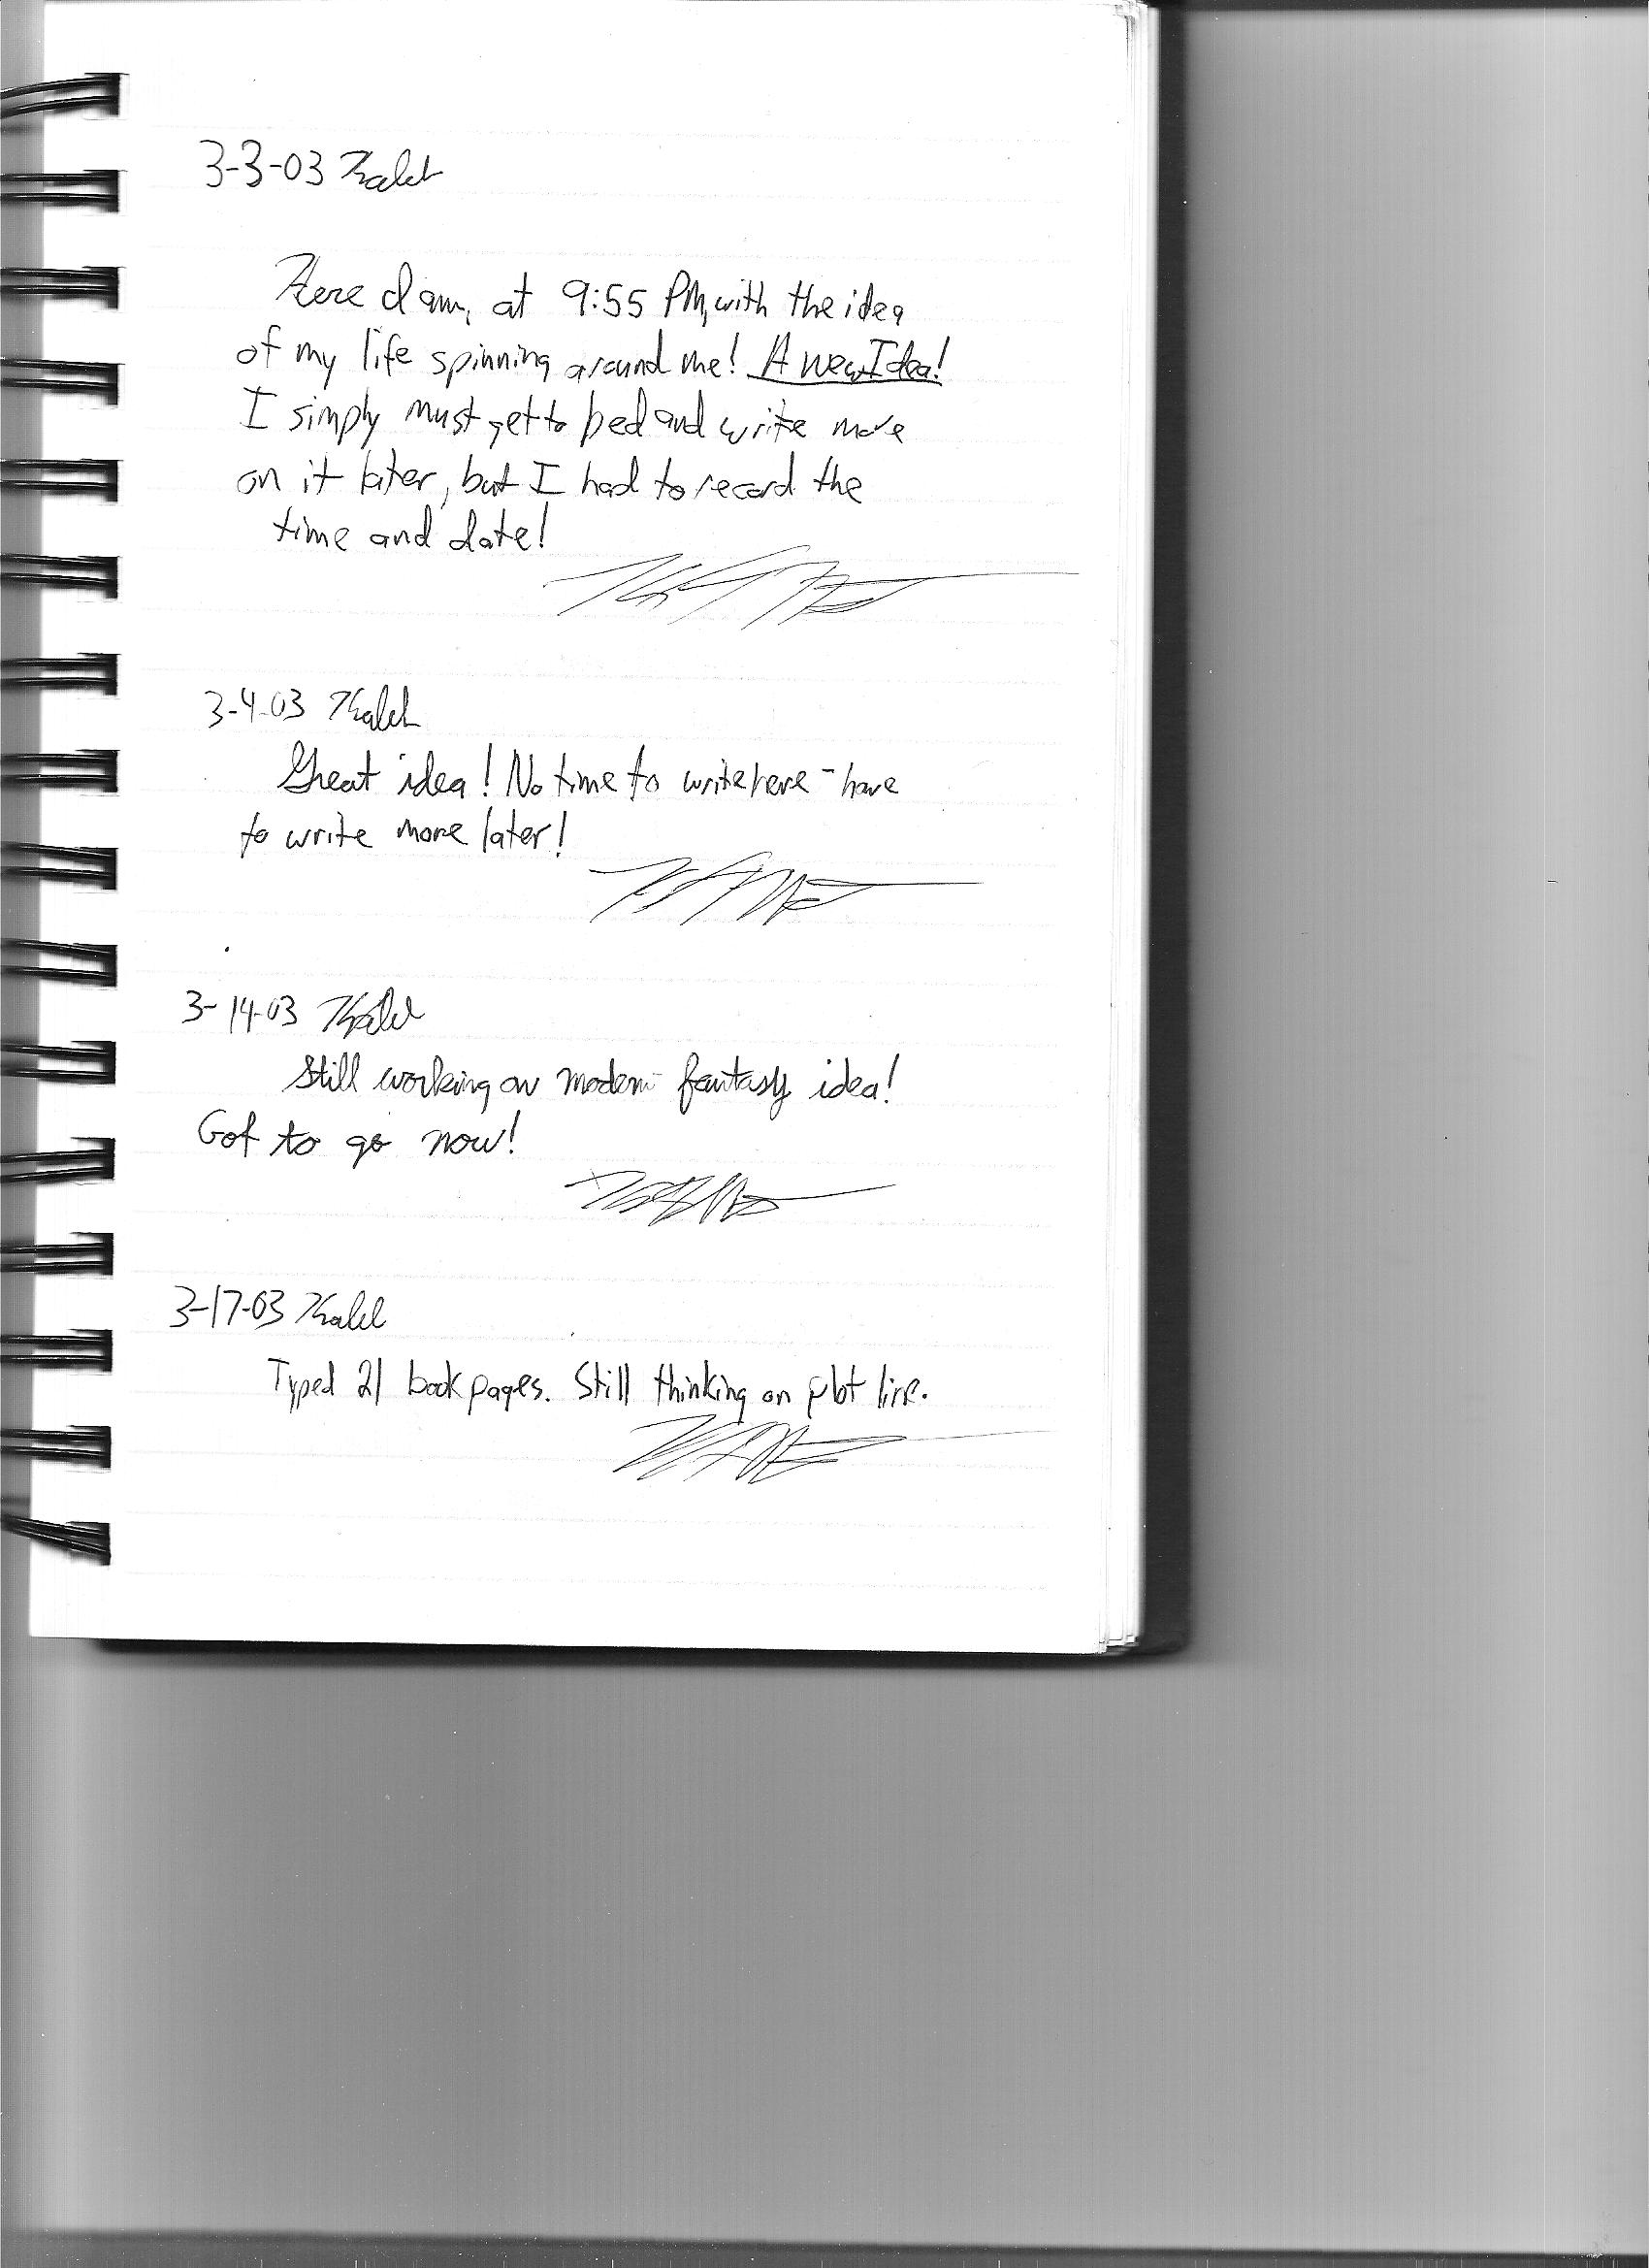 3-3-03 Kaleb
Here I am, at 9:55 PM, with the idea
of my life spinning around me! A new Idea!
I simply must get to bed and write more
on it later, but I had to record the
time and date!
3-4-03 Kaleb
Great idea! No time to write here - have
to write more later!
3-14-03 Kaleb
Still working on modern fantasy idea!
Got to go now!
3-17-03 Kaleb
Typed 21 book pages. Still thinking on plot line.